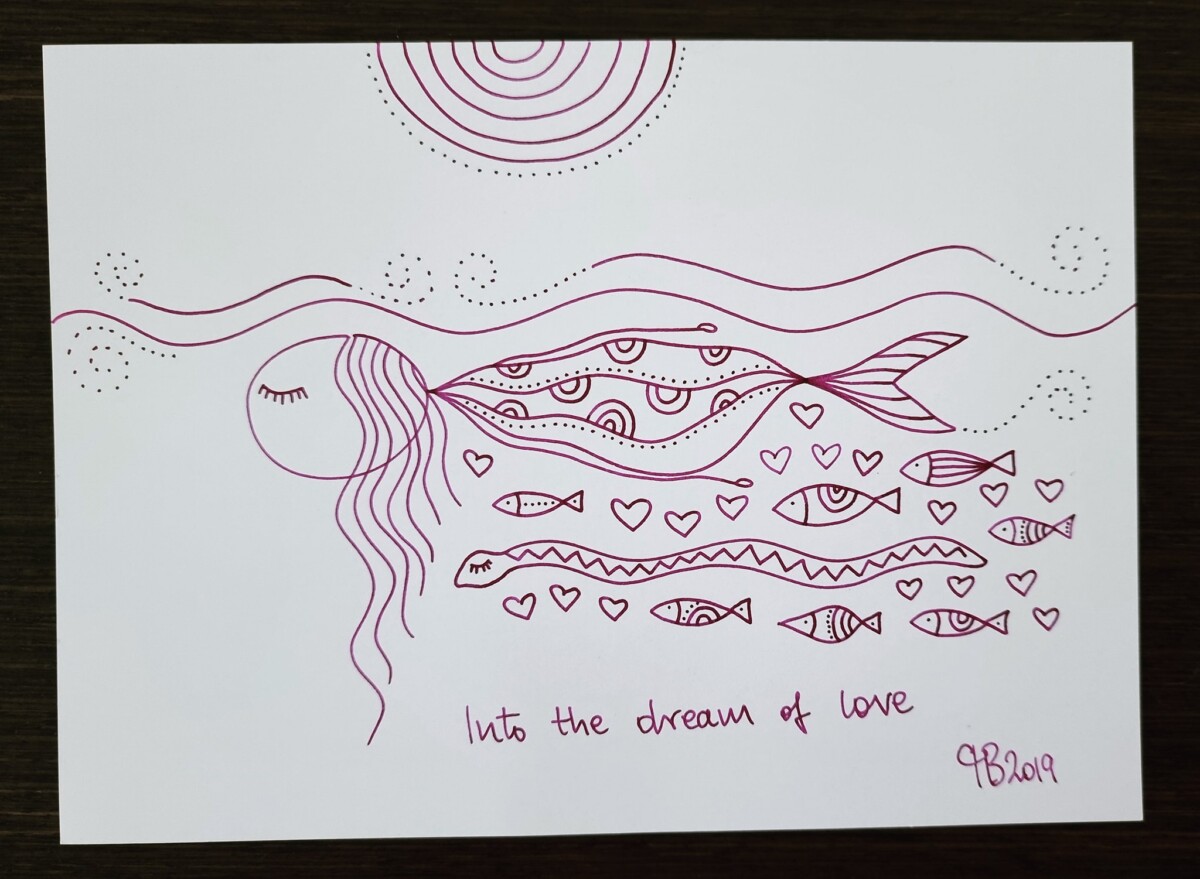 Into the dream of love
PB2019